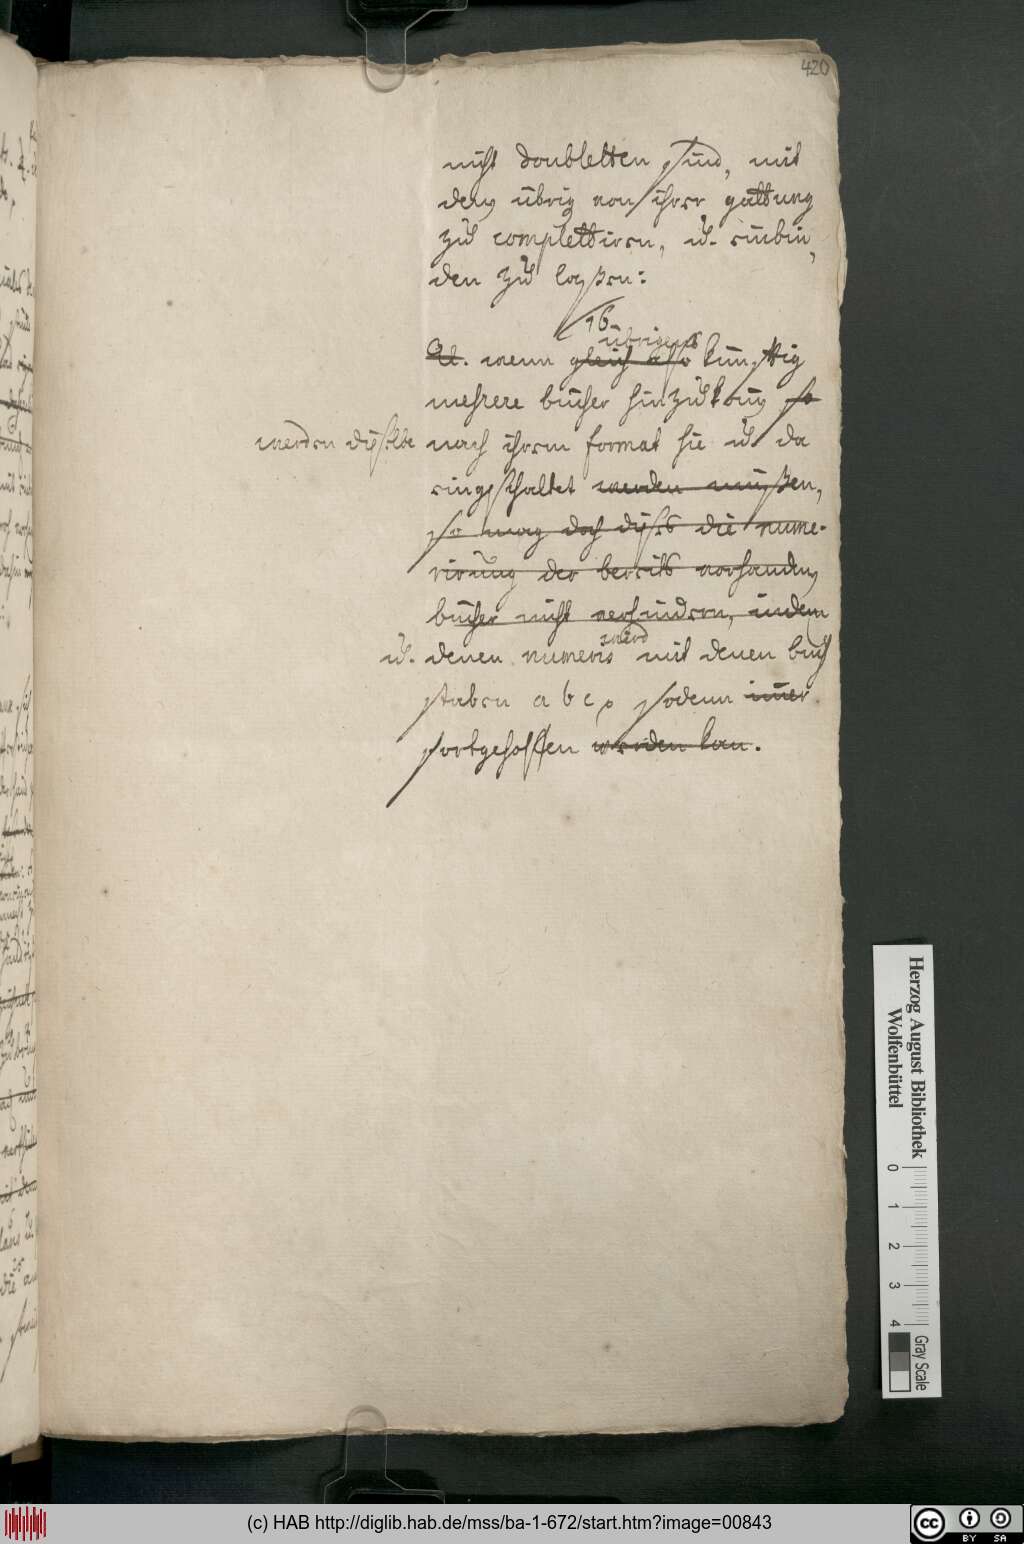 420
nicht doubletten sind, mit
den übrig von ihrer gattung
zu complettiren, u. einbin,
den zu laßen:
16.
übrigens
Al. wenn gleich also künfftig
mehrere bücher hinzukom̅en so
werden dieselbe nach ihrem format hie u. da
eingeschaltet werden müßen,
so mag doch dieses die nume-
rirung der bereits vorhanden
bücher nicht verhindern, indem
wird
u. denen numeris mit denen buch
staben a b c, sodenn im̅er
fortgeholffen werden kan.
Herzog August Bibliothek
Wolfenbüttel
0 1 2 3 4
Gray Scale
(c) HAB http://diglib.hab.de/mss/ba-1-672/start.htm?image=00843
cc BY SA